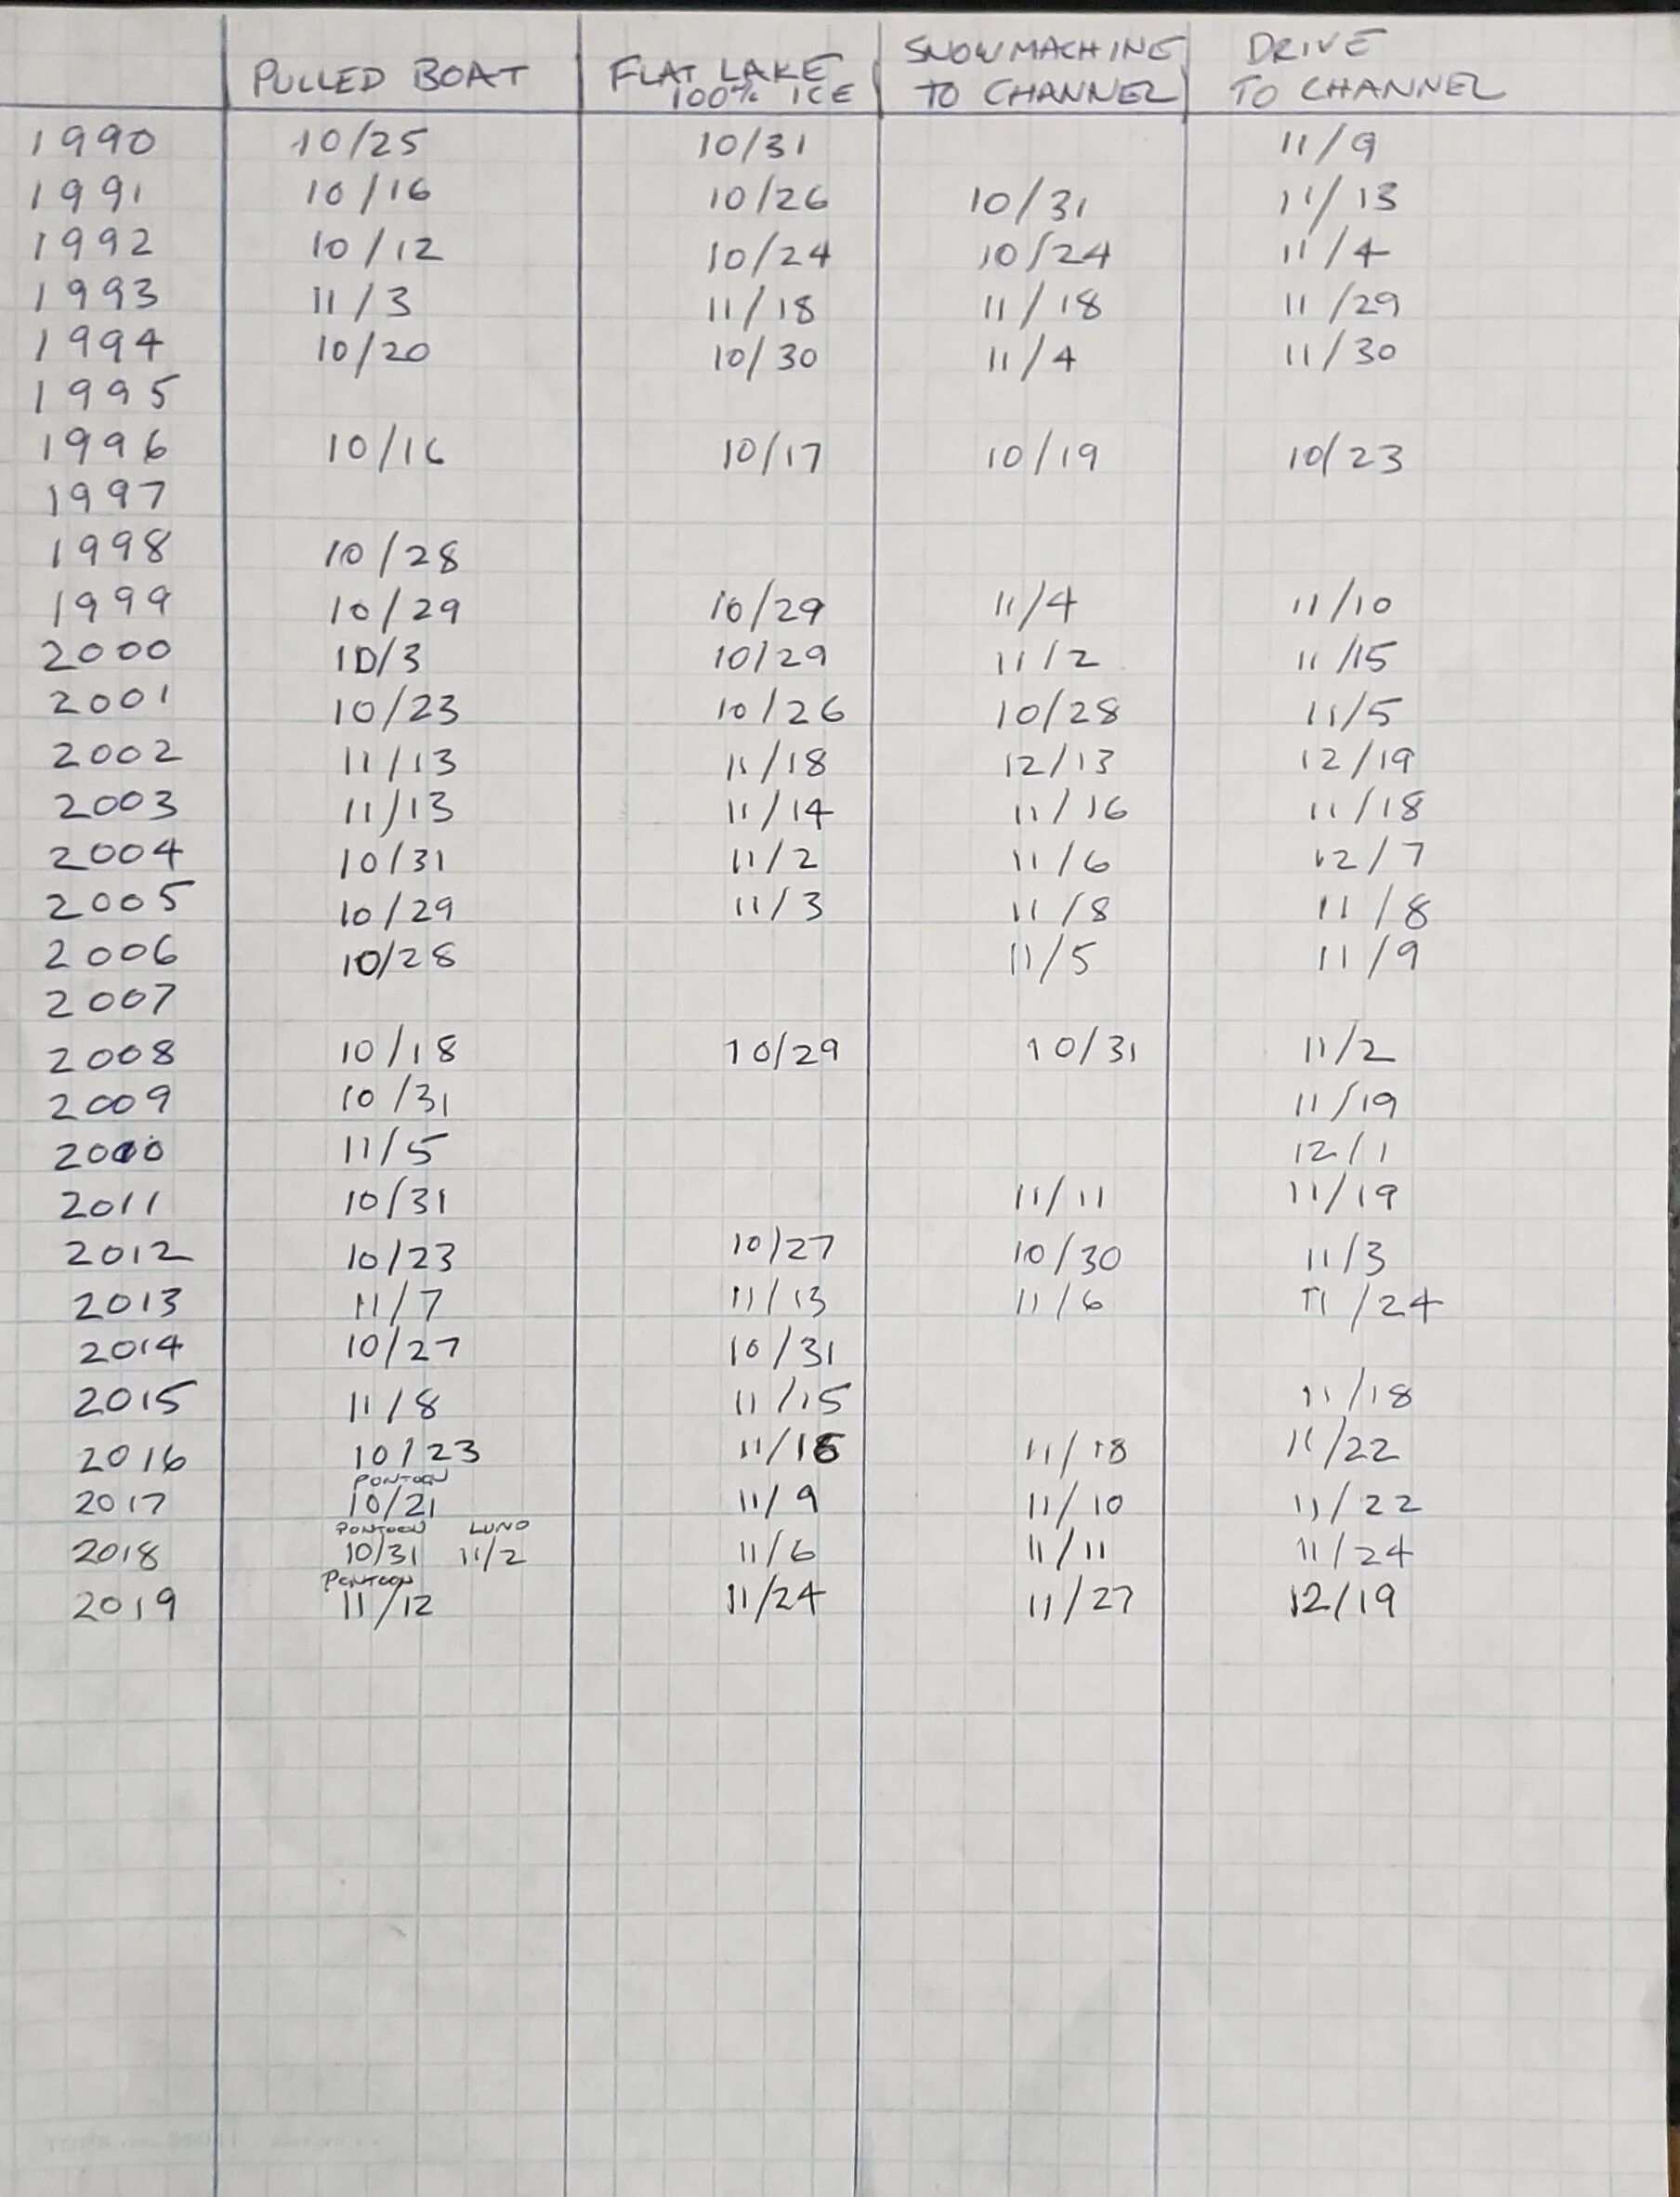 PULLED BOAT FLAT LAKE 100% ICE SNOWMACHINE TO CHANNEL DRIVE TO CHANNEL
1990 10/25 10/31 11/9
1991 10/16 10/26 10/31 11/13
1992 10/12 10/24 10/24 11/4
1993 11/3 11/18 11/18 11/29
1994 10/20 10/30 11/4 11/30
1995
1996 10/16 10/17 10/19 10/23
1997
1998 10/28
1999 10/29 10/29 11/4 11/10
2000 10/3 10/29 11/2 11/15
2001 10/23 10/26 10/28 11/5
2002 11/13 11/18 12/13 12/19
2003 11/13 11/14 11/16 11/18
2004 10/31 11/2 11/6 12/7
2005 10/29 11/3 11/8 11/8
2006 10/28 11/5 11/9
2007
2008 10/18 10/29 10/31 11/2
2009 10/31 11/19
2010 11/5 12/1
2011 10/31 11/11 11/19
2012 10/23 10/27 10/30 11/3
2013 11/7 11/13 11/6 11/24
2014 10/27 10/31
2015 11/8 11/15 11/18
2016 10/23 11/18 11/22
PONTOON
2017 10/21 11/9 11/10 11/22
PONTOON LUND
2018 10/31 11/2 11/6 11/11 11/24
PONTOON
2019 11/12 11/24 11/27 12/19